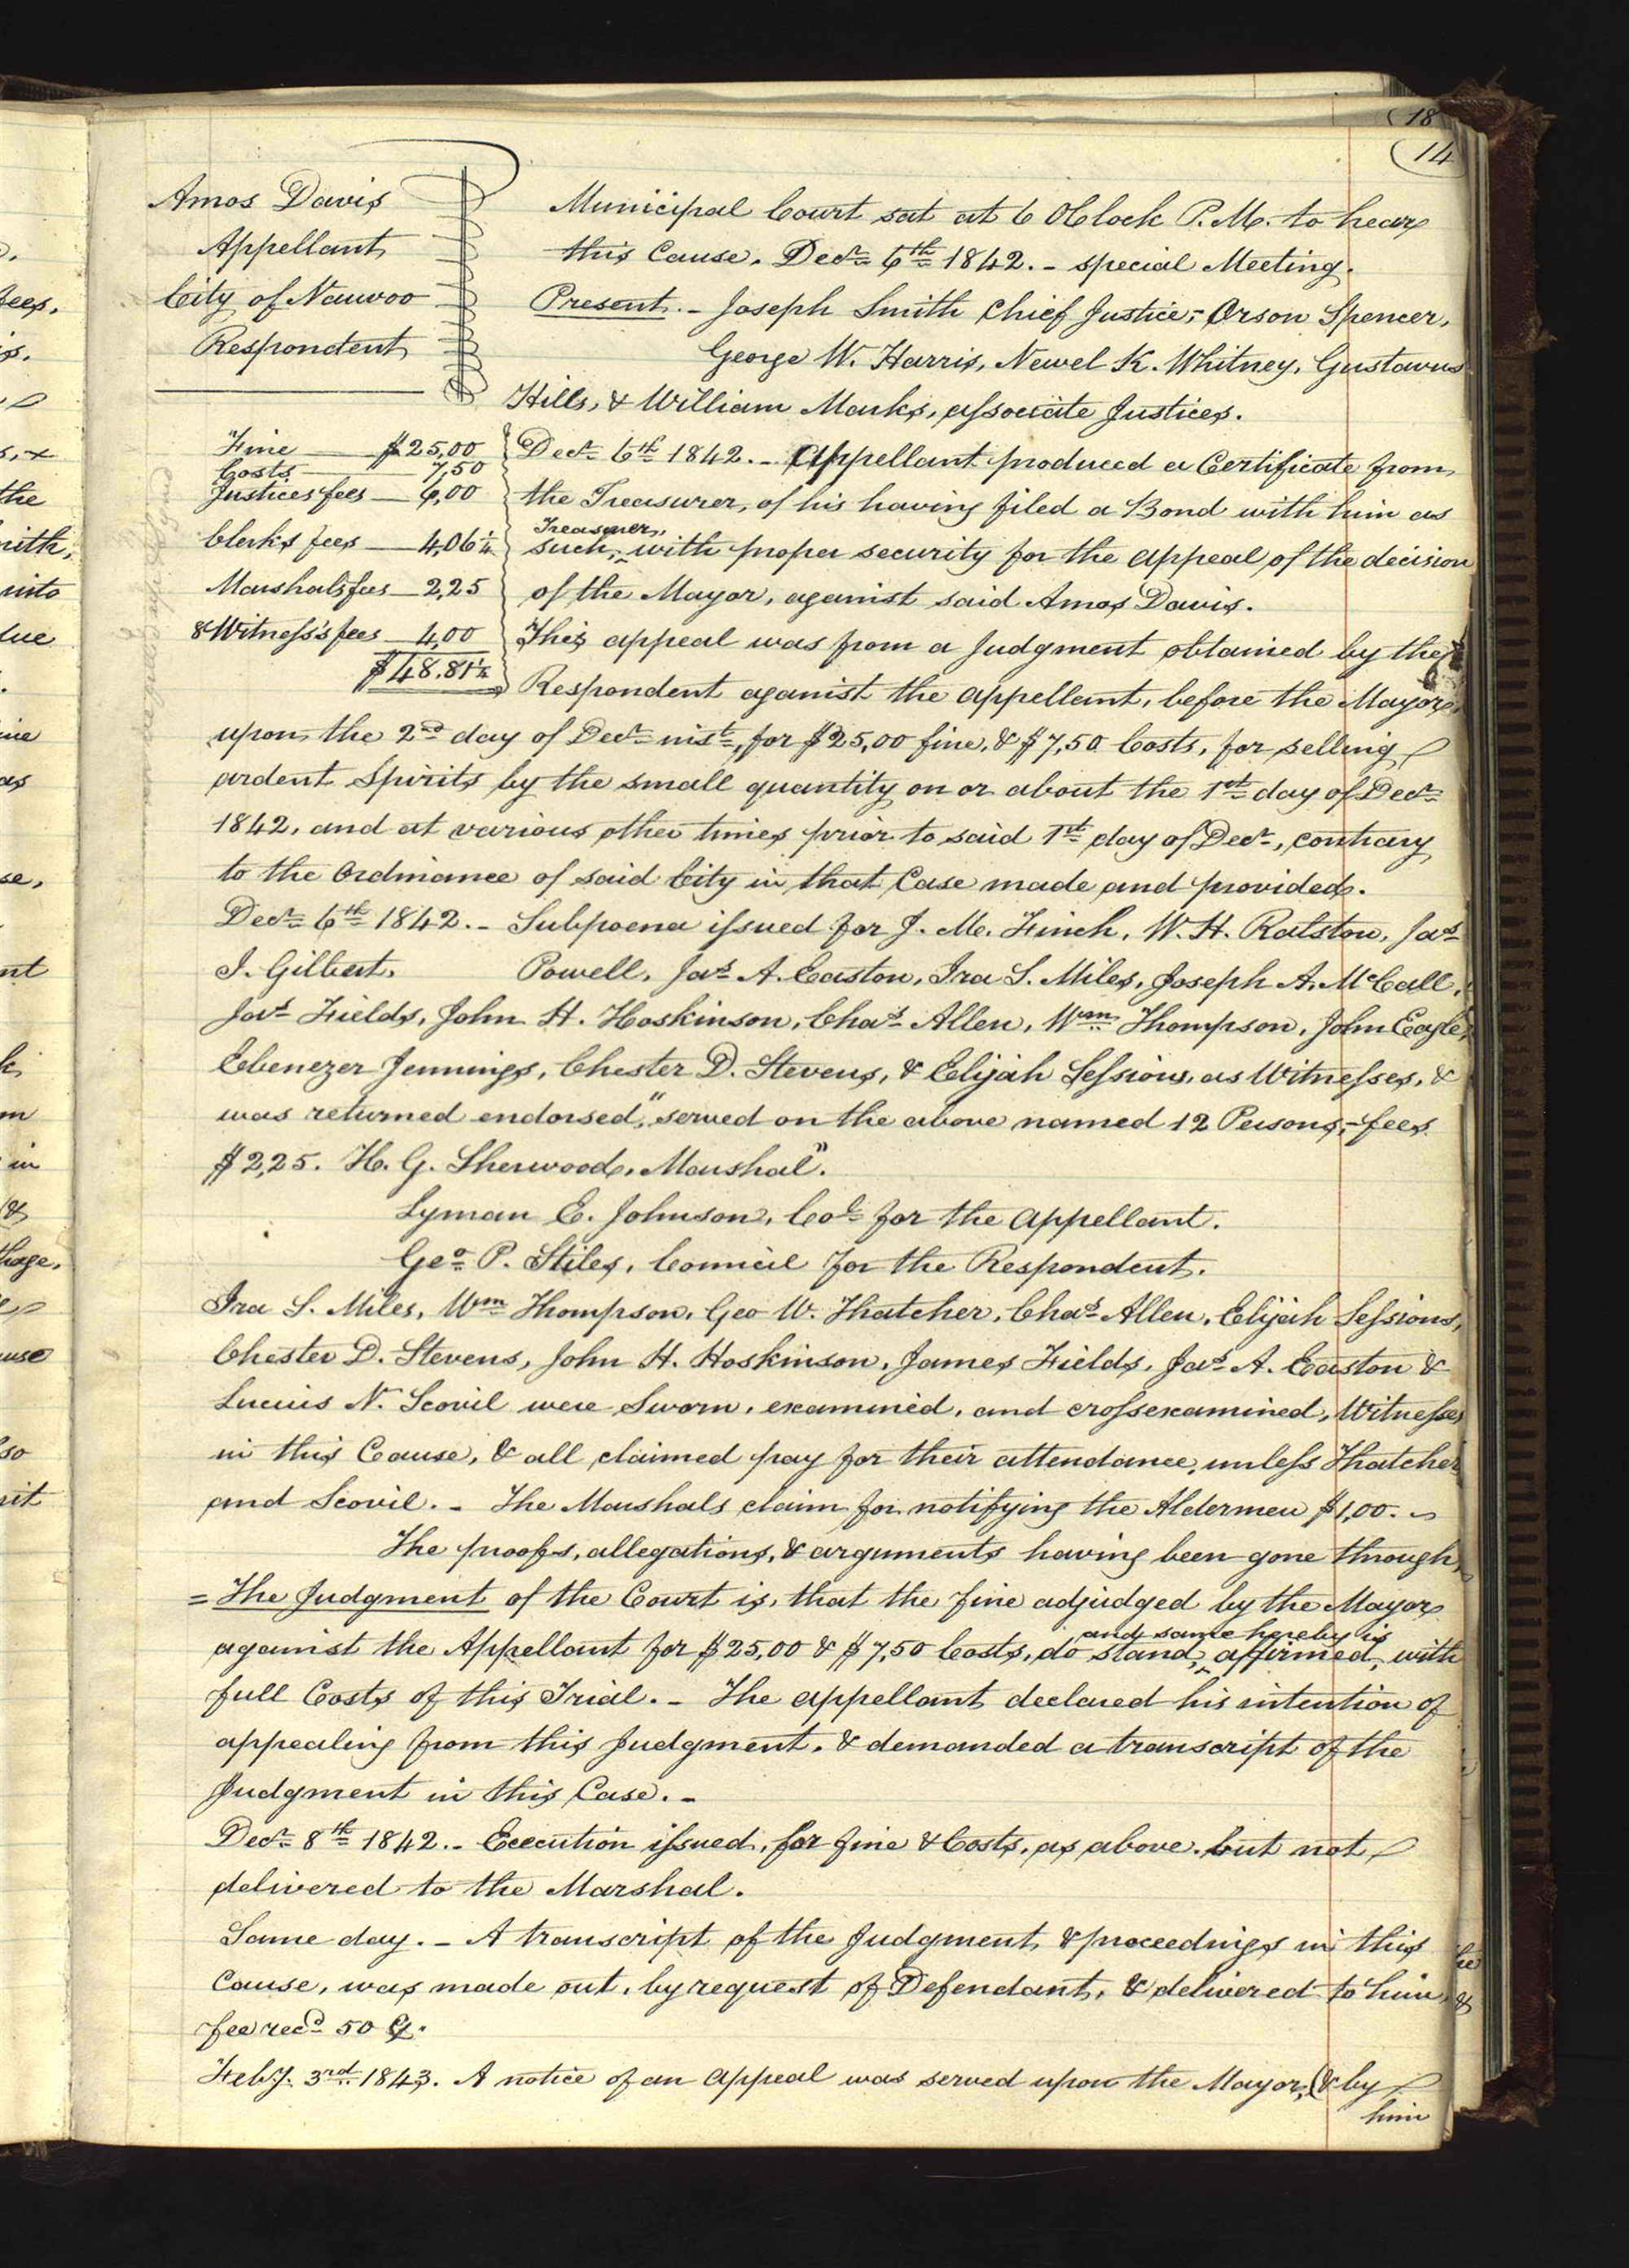 18
14
Amos Davis
Appellant
City of Nauvoo
Respondent
Municipal Court sat at 6 OClock P.M. to hear
this Cause. Decr. 6th 1842. – special Meeting.
Present. – Joseph Smith Chief Justice, Orson Spencer,
George W. Harris, Newel K. Whitney, Gustavus
Hills, & William Marks, associate Justices.
Fine — $25,00
Costs — 7,50
Justices fees — 6,00
Clerks fees — 4,06¼
Marshals fees — 2,25
& Witness's fees — 4,00
$48.81¼
Decr. 6th 1842. – Appellant produced a Certificate from
the Treasurer, of his having filed a Bond with him as
Treasurer,
such, ^ with proper security for the appeal of the decision
of the Mayor, against said Amos Davis.
This appeal was from a Judgment obtained by the
Respondent against the appellant, before the Mayor
upon the 2nd day of Decr. inst., for $25,00 fine, & $7,50 Costs, for selling
ardent Spirits by the small quantity on or about the 1st day of Decr.
1842, and at various other times prior to said 1st day of Decr., contrary
to the Ordinance of said City in that Case made and provided.
Decr. 6th 1842. – Subpoena issued for J. M. Finch, W. H. Ralston, Jas.
I. Gilbert, Powell, Jas. A. Easton, Ira S. Miles, Joseph A. McCall,
Jas. Fields, John H. Hoskinson, Chas. Allen, Wm. Thompson, John Eagle,
Ebenezer Jennings, Chester D. Stevens, & Elijah Sessions, as Witnesses, &
was returned endorsed, "served on the above named 12 Persons, – fees
$2,25. H. G. Sherwood, Marshal".
Lyman E. Johnson, Col. for the appellant.
Geo. P. Stiles, Council for the Respondent.
Ira S. Miles, Wm Thompson, Geo W. Thatcher, Chas. Allen, Elijah Sessions,
Chester D. Stevens, John H. Hoskinson, James Fields, Jas. A. Easton &
Lucius N. Scovil were Sworn, examined, and crossexamined, Witnesses
in this Cause, & all claimed pay for their attendance, unless Thatcher
and Scovil. – The Marshals claim for notifying the Aldermen $1,00.
The proofs, allegations, & arguments having been gone through,
= The Judgment of the Court is, that the fine adjudged by the Mayor
and same hereby is
against the Appellant for $25,00 & $7,50 Costs, do stand, ^ affirmed, with
full Costs of this Trial. – The appellant declared his intention of
appealing from this Judgment, & demanded a transcript of the
Judgment in this Case. –
Decr. 8th 1842. – Execution issued, for fine & Costs, as above, but not
delivered to the Marshal.
Same day. – A transcript of the Judgment, & proceedings in this
Cause, was made out, by request of Defendant, & delivered to him,
fee recd 50 C.
Feby. 3rd 1843. A notice of an appeal was served upon the Mayor, (& by
him